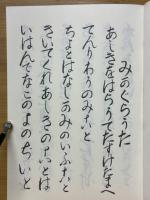 みかぐらうた
あしきをはらうてたすけたまへ
てんりわうのみこと
ちよとはなしかみのいふこと
きいてくれあしきのことは
いはんでなこのよのぢいと